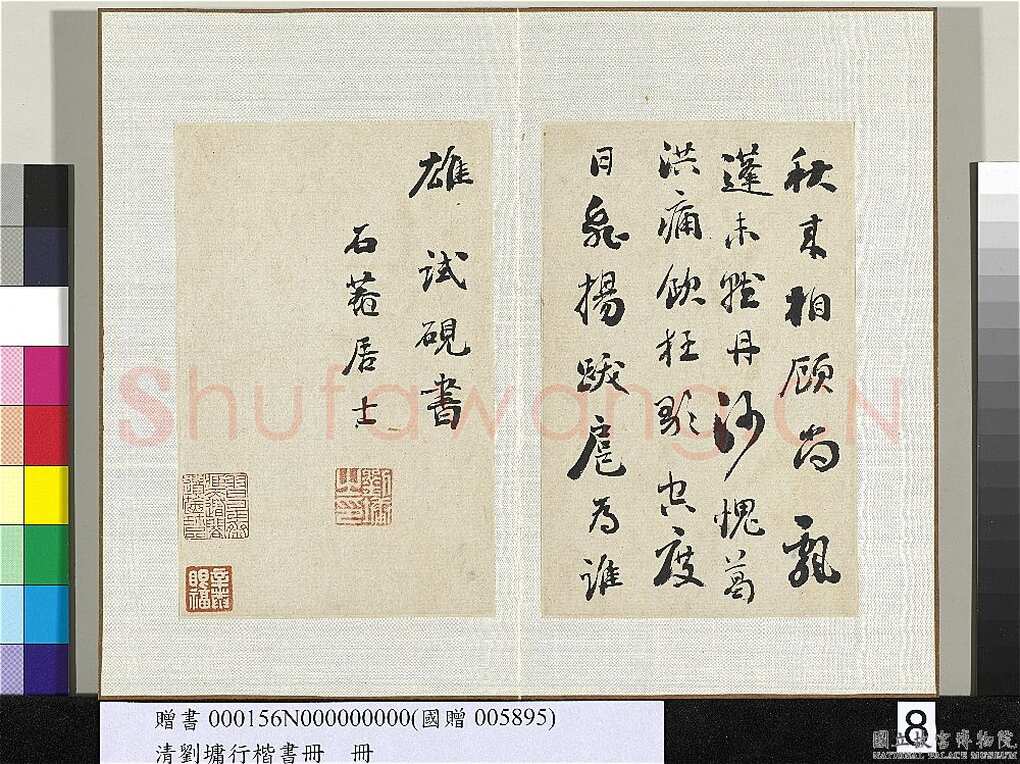 秋來相顧尚飄
蓬未就丹沙愧葛
洪痛飲狂歌空度
日飛揚跋扈為誰
雄 試硯書
石菴居士
劉墉之印
Shufawang.CN
贈書 000156N000000000(國贈 005895)
清劉墉行楷書冊 冊
8
國立故宮博物院
NATIONAL PALACE MUSEUM